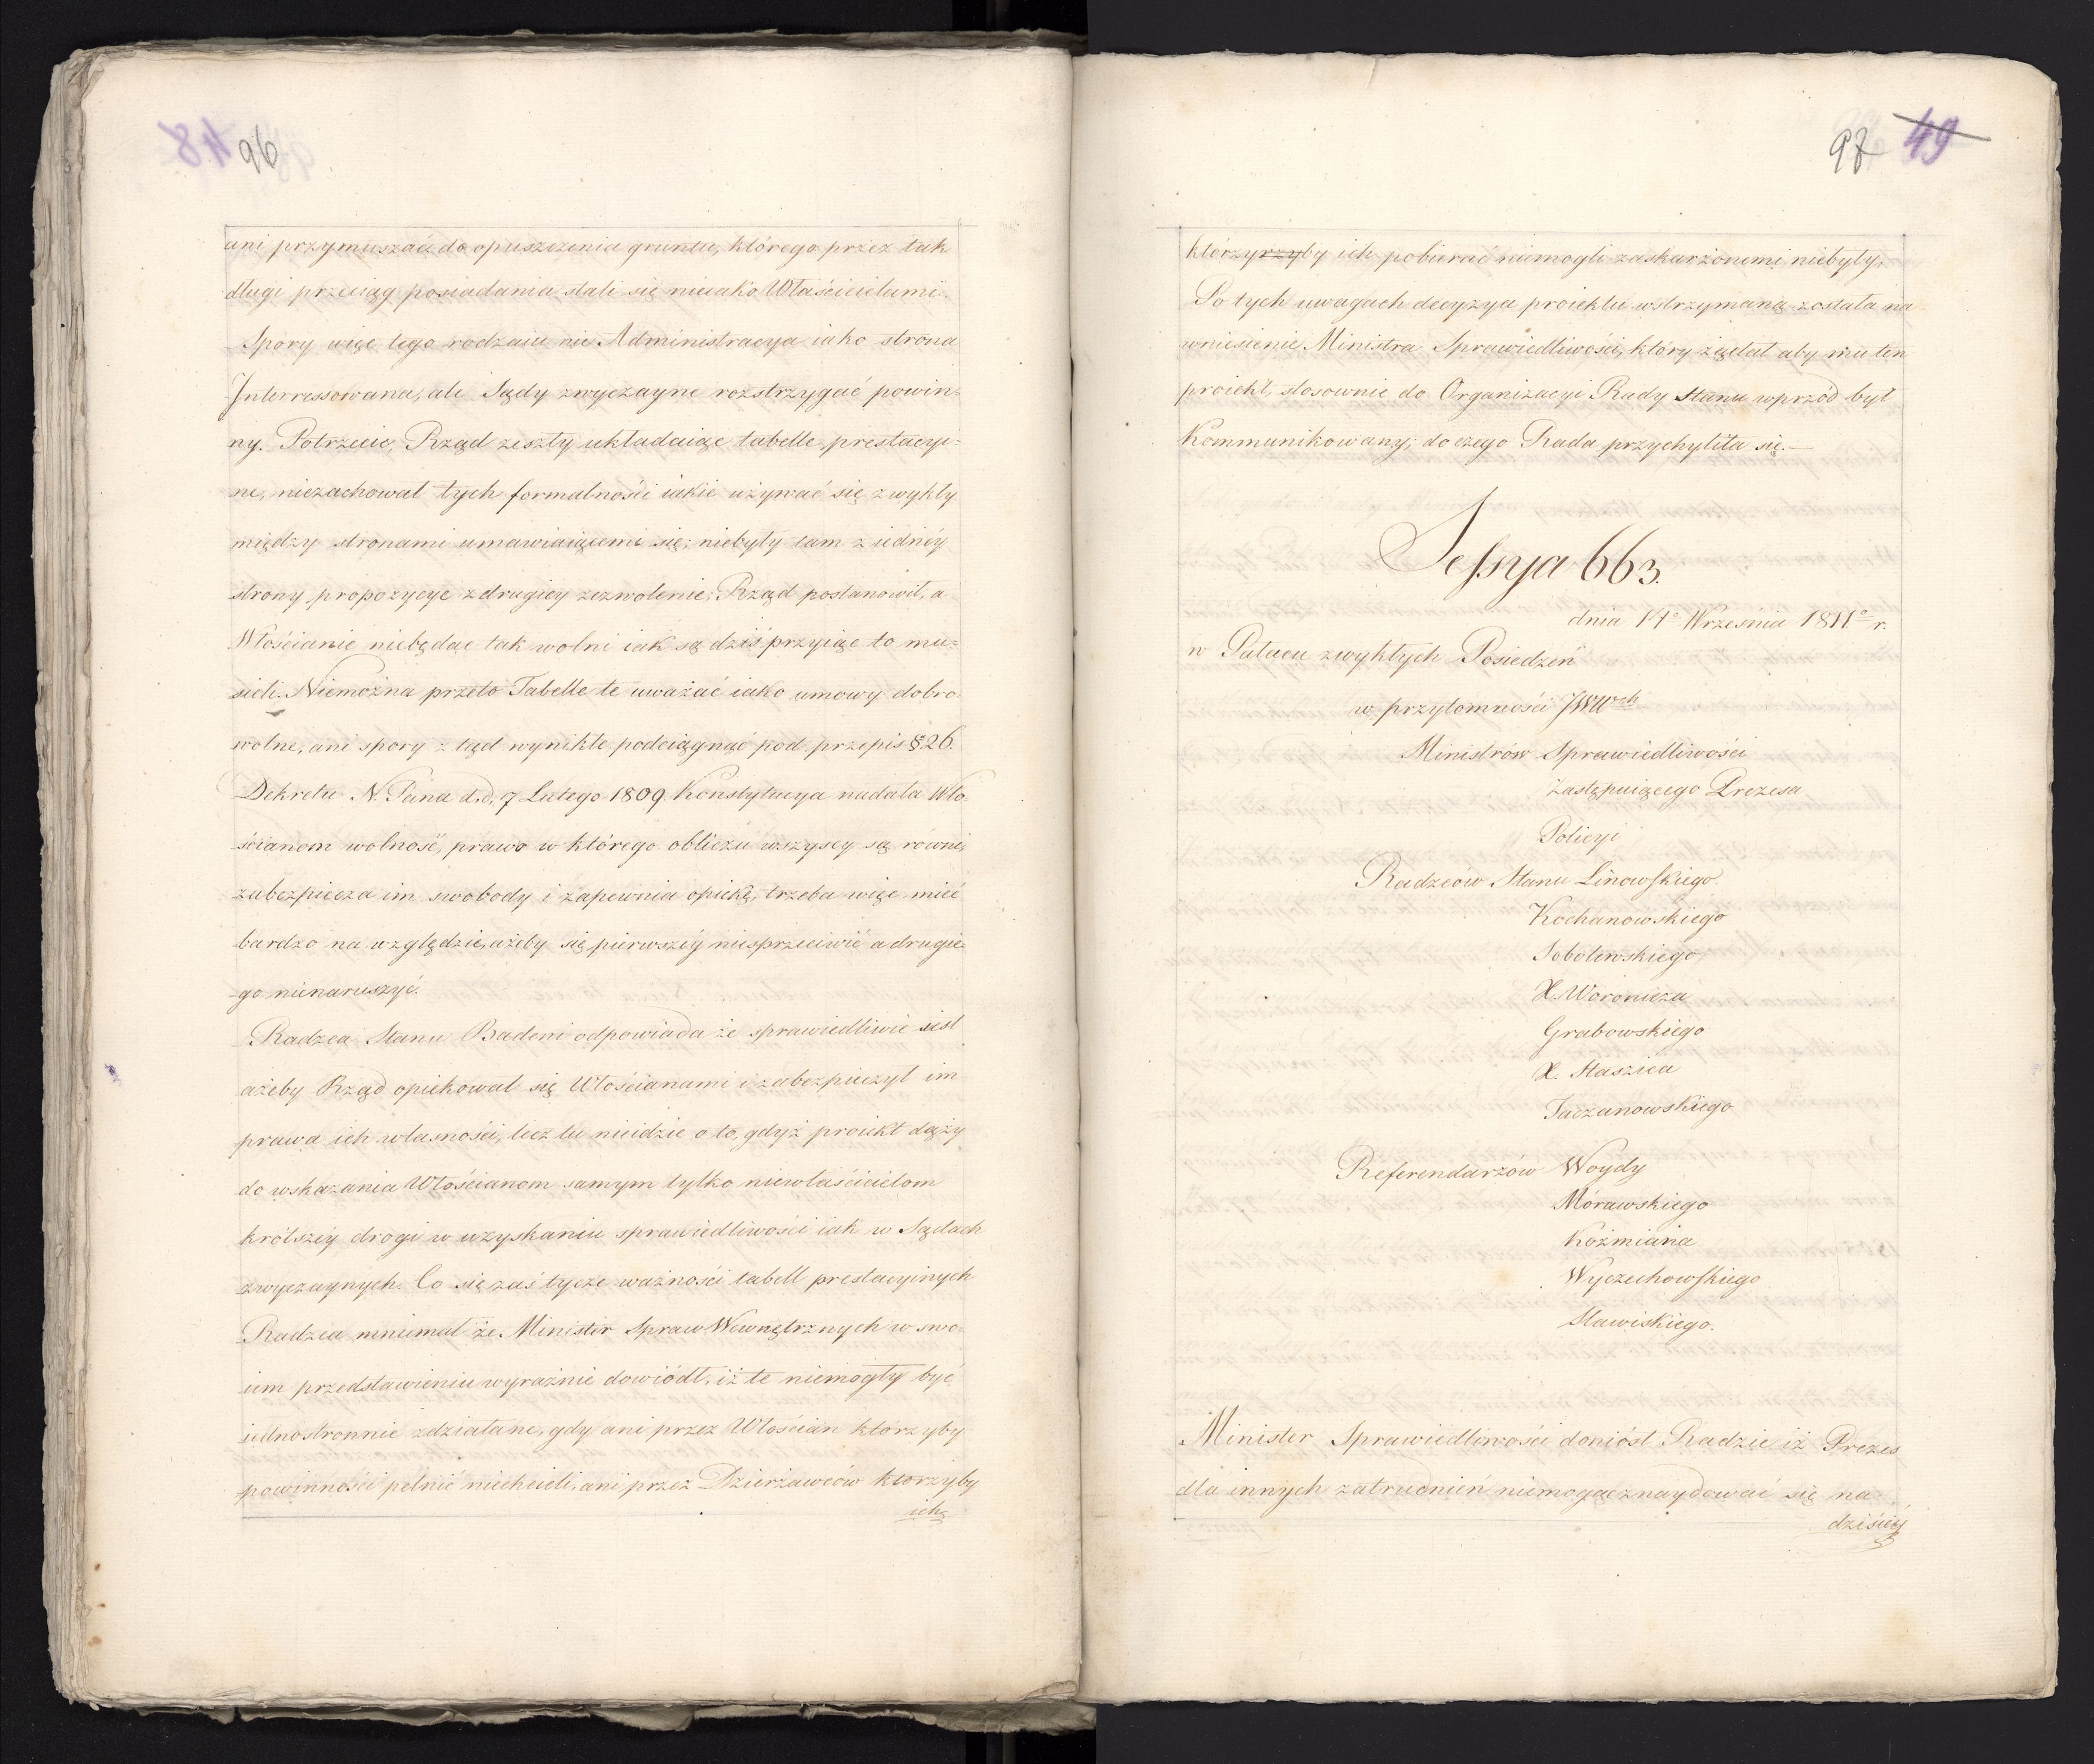 96
ani przymuszać do opuszczenia gruntu, którego przez tak
długi przeciąg posiadania stali się nieiako Właścicielami.
Spory więc tego rodzaiu nie Administracya iako strona
Interressowana, ale Sądy zwyczayne rozstrzygać powin-
ny. Potrzecie, Rząd zeszły układaiąc tabelle prestacyi-
ne, niezachował tych formalności iakie używać się zwykły
między stronami umawiaiącemi się; niebyły tam z iedney
strony propozycye z drugiey zezwolenie; Rząd postanowił, a
Włościanie niebędąc tak wolni iak są dziś przyiąć to mu=
sieli. Niemożna przeto Tabelle te uważać iako umowy dobro
wolne, ani spory z tąd wynikłe podciągnąć pod przepis § 26.
Dekretu N. Pana d.d. 7 Lutego 1809. Konstytucya nadała Wło
ścianom wolność, prawo w którego obliczu wszyscy są równi,
zabezpiecza im swobody i zapewnia opiekę, trzeba więc mieć
bardzo na względzie, ażeby się pierwszéy niesprzeciwić a drugie-
go nienaruszyć.
Radzca Stanu Badeni odpowiada że sprawiedliwie iest
ażeby Rząd opiekował się Włościanami i zabezpieczył im
prawa ich własności, lecz tu nieidzie o to, gdyż proiekt dąży
do wskazania Włościanom samym tylko niewłaścicielom
krótszéy drogi w uzyskaniu sprawiedliwości iak w Sądach
zwyczaynych. Co się zaś tycze ważności tabell prestacyinych
Radzca mniemał że Minister Spraw Wewnętrznych w swo-
iem przedstawieniu wyraźnie dowiódł, iż te niemogły być
iednostronnie zdziałane, gdy ani przez Włościan którzyby
powinności pełnić niechcieli, ani przez Dzierżawców którzyby
ich
97 49
którzyrzyby ich pobierać niemogli zaskarżonemi niebyły.
Po tych uwagach decyzya proiektu wstrzymaną została na
wniesienie Ministra Sprawiedliwości, który żądał aby mu ten
proiekt, stosownie do Organizacyi Rady Stanu wprzód był
Kommunikowany; do czego Rada przychyliła się.—
Sessya 663.
dnia 14º Września 1811º r.
w Pałacu zwykłych Posiedzeń
w przytomności JWWch
Ministrów Sprawiedliwości
Zastępuiącego Prezesa
Policyi
Radzców Stanu Linowskiego
Kochanowskiego
Sobolewskiego
X. Woronicza
Grabowskiego
X. Staszica
Taczanowskiego
Referendarzów Woydy
Mórawskiego
Koźmiana
Wyczechowskiego
Sławiskiego.
Minister Sprawiedliwości doniósł Radzie iż Prezes
dla innych zatrudnień niemogąc znaydować się na
dzisiéy